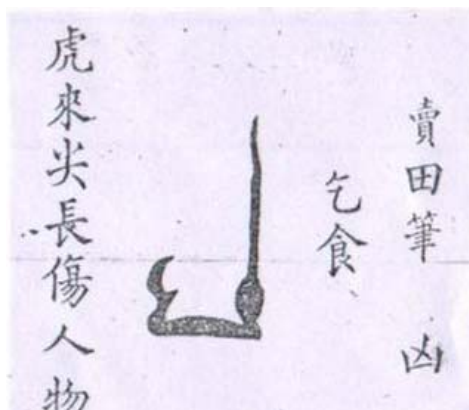 賣田筆 凶
乞食
虎來尖長傷人物